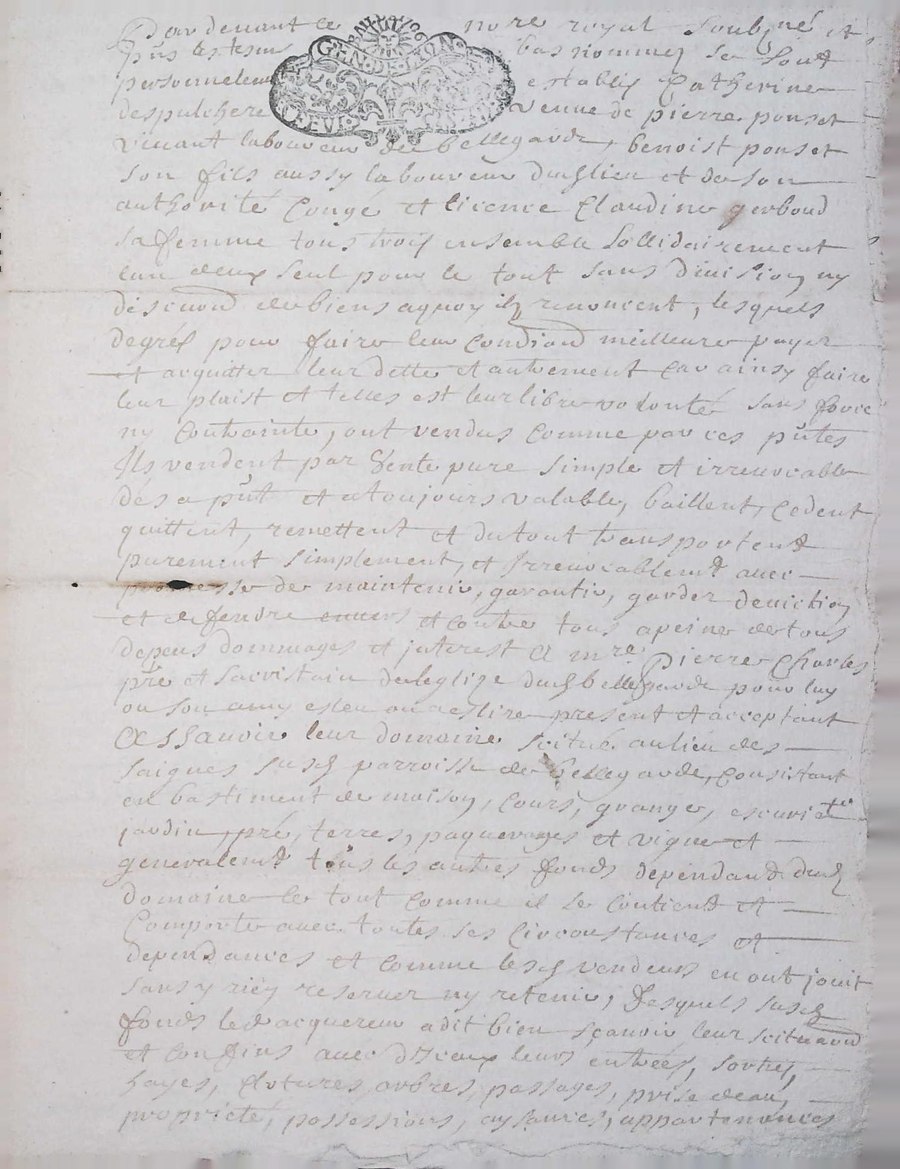 Pardevant le nore royal soubzné et
pñs les tesm bas nommez se sont
personnelem establis Catherine
despulchere veuve de pierre ponset
GEN. DE LION
vivant laboureur de bellegarde, benoist ponset
son fils aussy laboureur dud lieu et de son
authorité conge et licence Claudine gerboud
sa femme tous trois ensemble sollidairement
l'un deux seul pour le tout sans division ny
de biens aquoy ilz renoncent, lesquels
degrés pour faire leur meilleure payer
et acquitter leur dette et autrement car ainsy faire
leur plaist et telles est leur libre volonté sans force
ny contrainte, ont vendus comme par ces pñtes
Ils vendent par vente pure simple et irrevocable
dés a pñt et atoujours valable, baillent, cedent
quittent, remettent et dutout transportent
purement simplement, et Irrevocablemt avec
promesse de maintenir, garantir, garder deviction
et defendre envers et contre tous apeine de tous
depens dommages et interest A mre. Pierre Charles
pre et sacristain deleglize dud bellegarde pour luy
ou son amy esleu ou aeslire present et acceptant
Assavoir leur domaine scitué aulieu des
saignes susd parroisse de bellegarde, consistant
en bastiment de maison, cours, grange, escurie
jardin, pré, terres, paquerages et vigne et
generalemt tous les autres fonds dependant dud
domaine le tout comme il se contient et
Comporte avec toutes ses circonstances et
dependances et comme lesd vendeurs en ont jouit
sans y rien reserver ny retenir, desquels susd
fonds led acquereur adit bien scavoir leur
et confins avec d'Iceux leurs entrées, sorties,
hayes, clotures, arbres, passages, prise deau,
propriété, possessions, aysances, appartenances